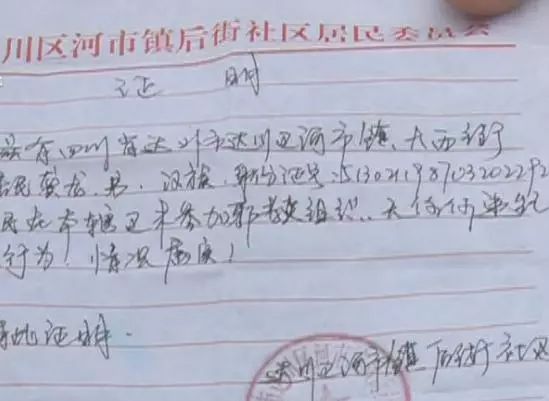 川区河市镇后街社区居民委员会
证 明
兹有四川省达州市达川区河市镇大西街
居民龚龙，男，汉族，身份证号：513021198703202292
民在本辖区未参加邪教组织，无任何违纪
行为！情况属实！
特此证明．
达川区河市镇后街社区